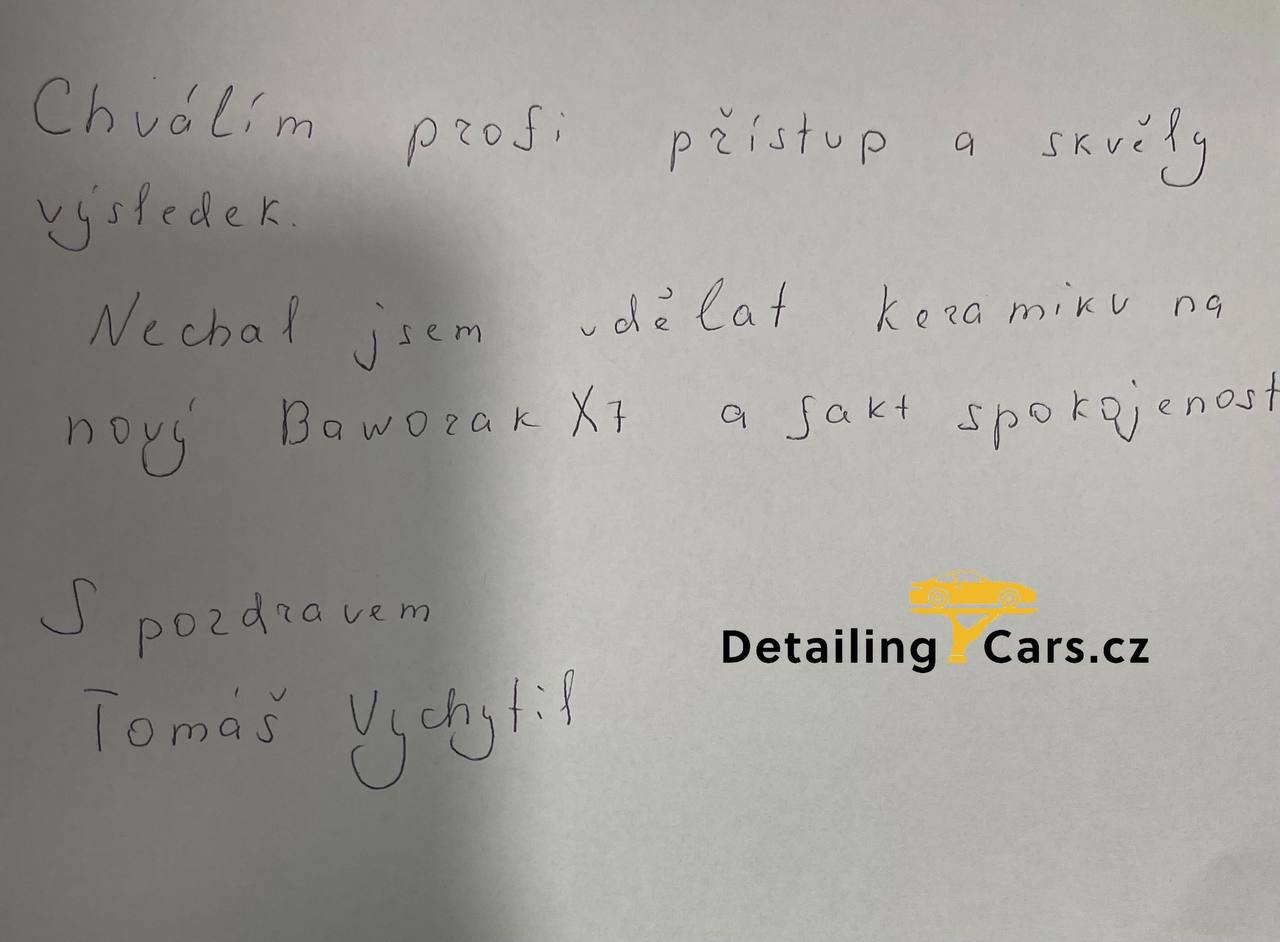 Chválím profi přístup a skvěly
výsledek.
Nechal jsem udělat keramiku na
nový Baworak X7 a fakt spokojenost
S pozdravem
DetailingCars.cz
Tomáš Vychytil